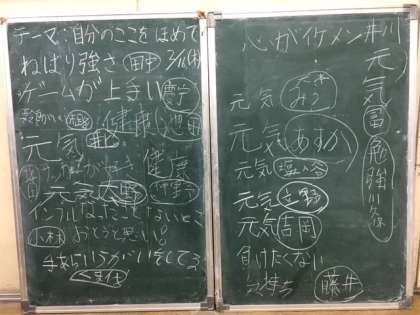 テーマ：自分のここをほめて
2/1(木)
ねばり強さ 田中
ゲームが上手い 寧
健康 池田
元気 井上
サッカーがすき 健康
元気 大野
インフルなったことないとこ
小林 おとうと思い!
手あらいうがいをしてる
心がイケメン 井川
元気 みう
元気 あすか
元気 塩谷
元気 立野
元気 吉岡
負けたくない
気持ち 藤井
元気 冨
勉強 川久保